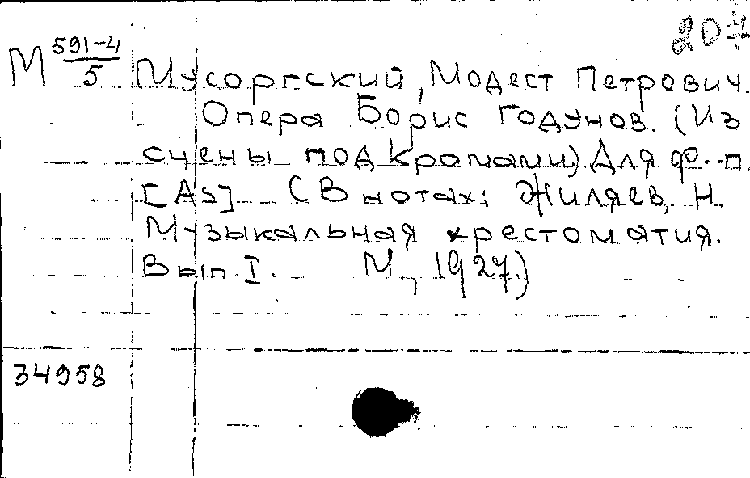 207
М 591-4/5 Мусоргский, Модест Петрович.
Опера Борис Годунов. (Из
сцены под Кромами) Для ф.-п.
[As] (В нотах: Жиляев, Н.
Музыкальная хрестоматия.
Вып. I. М., 1927.)
34958